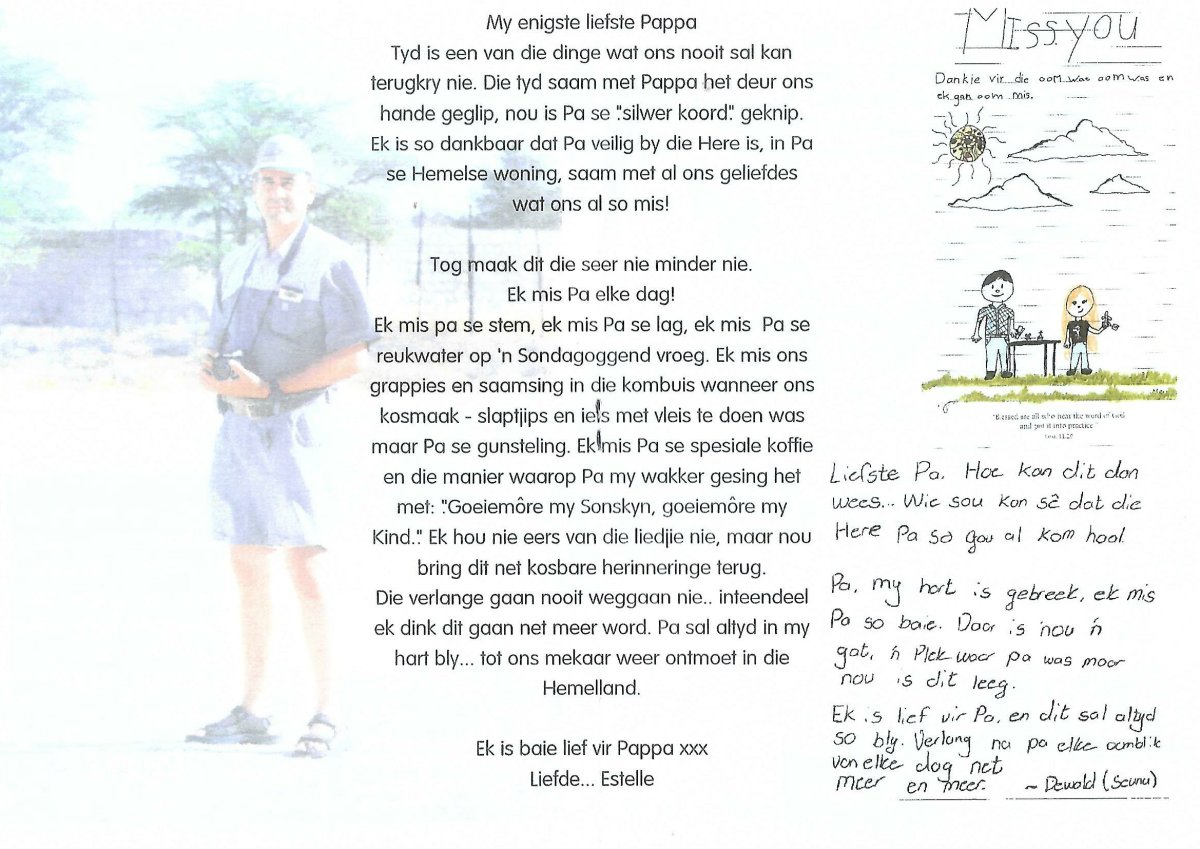 My enigste liefste Pappa
Tyd is een van die dinge wat ons nooit sal kan
terugkry nie. Die tyd saam met Pappa het deur ons
hande geglip, nou is Pa se "silwer koord" geknip.
Ek is so dankbaar dat Pa veilig by die Here is, in Pa
se Hemelse woning, saam met al ons geliefdes
wat ons al so mis!
Tog maak dit die seer nie minder nie.
Ek mis Pa elke dag!
Ek mis pa se stem, ek mis Pa se lag, ek mis Pa se
reukwater op 'n Sondagoggend vroeg. Ek mis ons
grappies en saamsing in die kombuis wanneer ons
kosmaak - slaptjips en iets met vleis te doen was
maar Pa se gunsteling. Ek mis Pa se spesiale koffie
en die manier waarop Pa my wakker gesing het
met: "Goeiemôre my Sonskyn, goeiemôre my
Kind." Ek hou nie eers van die liedjie nie, maar nou
bring dit net kosbare herinneringe terug.
Die verlange gaan nooit weggaan nie.. inteendeel
ek dink dit gaan net meer word. Pa sal altyd in my
hart bly... tot ons mekaar weer ontmoet in die
Hemelland.
Ek is baie lief vir Pappa xxx
Liefde... Estelle
Miss you
Dankie vir die oom wat oom was en
ek gan oom mis.
"Blessed are all who hear the word of God
and put it into practice"
Luke 11:28
Liefste Pa. Hoe kan dit dan
wees... Wie sou kon sê dat die
Here Pa so gou al kom haal
Pa, my hart is gebreek, ek mis
Pa so baie. Daar is nou 'n
gat, 'n Plek waar pa was maar
nou is dit leeg.
Ek is lief vir Pa, en dit sal altyd
so bly. Verlang na pa elke oomblik
van elke dag net
meer en meer. ~ Dewald (Seuna)